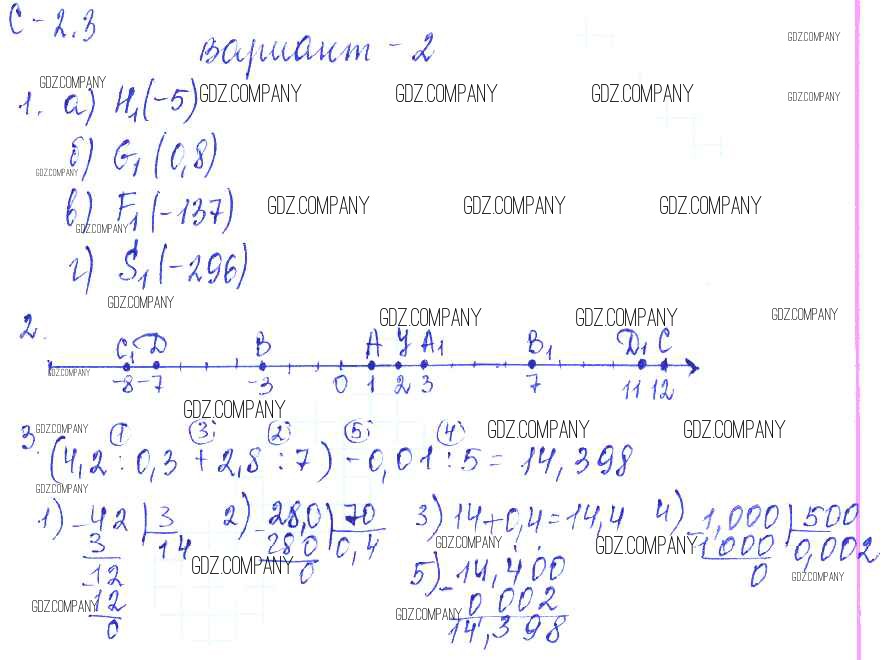 С - 2.3
GDZ.COMPANY
вариант - 2
GDZ.COMPANY
GDZ.COMPANY GDZ.COMPANY GDZ.COMPANY GDZ.COMPANY
1. а) H₁(-5)
б) G₁(0,8)
GDZ.COMPANY
в) F₁(-137)
GDZ.COMPANY GDZ.COMPANY GDZ.COMPANY
GDZ.COMPANY
г) S₁(-296)
GDZ.COMPANY
GDZ.COMPANY GDZ.COMPANY GDZ.COMPANY
2.
C₁ D B A У A₁ B₁ D₁ C
GDZ.COMPANY
-8 -7 -3 0 1 2 3 7 11 12
GDZ.COMPANY
GDZ.COMPANY GDZ.COMPANY GDZ.COMPANY
① ③ ② ⑤ ④
3. (4,2 : 0,3 + 2,8 : 7) - 0,01 : 5 = 14,398
GDZ.COMPANY
1) - 42 | 3
3 14
- 12
12
0
2) - 28,0 | 70
28 0 0,4
0
3) 14 + 0,4 = 14,4
4) - 1,000 | 500
1 000 0,002
0
5) - 14,400
0 002
14,398
GDZ.COMPANY GDZ.COMPANY
GDZ.COMPANY GDZ.COMPANY
GDZ.COMPANY GDZ.COMPANY